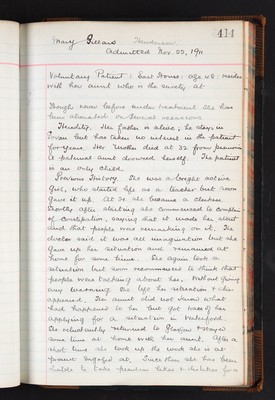 414
Mary
Admitted Nov. 22, 1911
Voluntary Patient: East House: age 48: resides
with her aunt who is the surety at
Though never before under treatment she has
been alienated on several occasions.
Heredity. Her father is alive; he stays in
but has taken no interest in the patient
for years. Her mother died at 32 from
A paternal aunt drowned herself. The patient
is an only child.
Previous History. She was a bright active
Girl, who started life as a teacher but soon
gave it up. At 30 she became a clerkess.
Shortly after starting she commenced to complain
of constipation, saying that it made her
and that people was remarking on it. The
doctor said it was all imagination but she
gave up her situation and remained at
home for some time. She again took a
situation but soon recommenced to think that
people was talking about her. Without giving
any warning she left her situation & dis-
appeared. Her aunt did not know what
had happened to her but got
applying for a situation in Waterford.
She reluctantly returned to Glasgow & stayed
some time at home with her aunt. After a
short time she took up the work she is at
present engaged at. Since then she has been
liable to take peculiar likes & dislikes for a